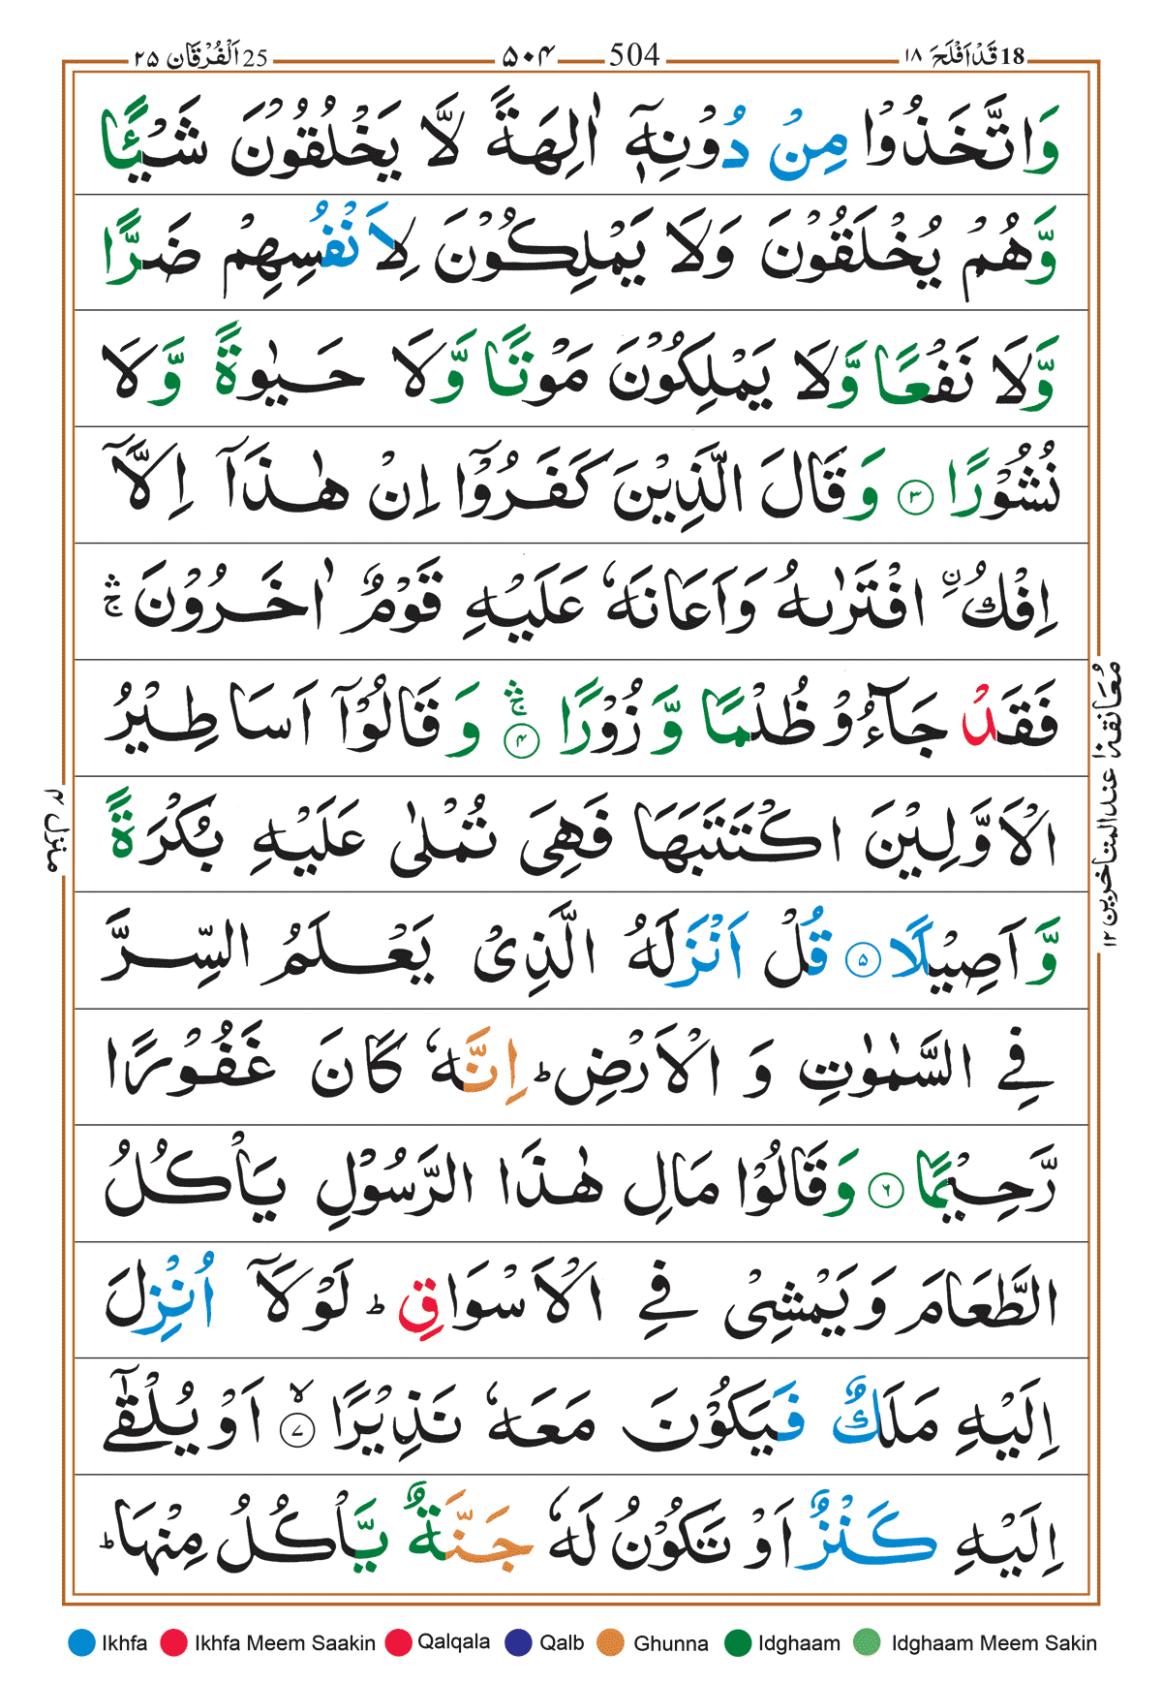 18 قَدْ اَفْلَحَ ۱۸ 504 ۵۰۴ 25 اَلْفُرْقَان ۲۵
وَاتَّخَذُوْا مِنْ دُوْنِهٖۤ اٰلِهَةً لَّا يَخْلُقُوْنَ شَيْـًٔا
وَّهُمْ يُخْلَقُوْنَ وَلَا يَمْلِكُوْنَ لِاَنْفُسِهِمْ ضَرًّا
وَّلَا نَفْعًا وَّلَا يَمْلِكُوْنَ مَوْتًا وَّلَا حَيٰوةً وَّلَا
نُشُوْرًا ۳ وَقَالَ الَّذِيْنَ كَفَرُوْۤا اِنْ هٰذَاۤ اِلَّاۤ
اِفْكُ ۨ افْتَرٰىهُ وَاَعَانَهٗ عَلَيْهِ قَوْمٌ اٰخَرُوْنَ ۛۚ
فَقَدْ جَآءُوْ ظُلْمًا وَّزُوْرًا ۛۚ ۴ وَقَالُوْۤا اَسَاطِيْرُ
الْاَوَّلِيْنَ اكْتَتَبَهَا فَهِىَ تُمْلٰى عَلَيْهِ بُكْرَةً
وَّاَصِيْلًا ۵ قُلْ اَنْزَلَهُ الَّذِىْ يَعْلَمُ السِّرَّ
فِى السَّمٰوٰتِ وَ الْاَرْضِ ؕ اِنَّهٗ كَانَ غَفُوْرًا
رَّحِيْمًا ۶ وَقَالُوْا مَالِ هٰذَا الرَّسُوْلِ يَاْكُلُ
الطَّعَامَ وَيَمْشِىْ فِى الْاَسْوَاقِ ؕ لَوْلَاۤ اُنْزِلَ
اِلَيْهِ مَلَكٌ فَيَكُوْنَ مَعَهٗ نَذِيْرًا ۙ ۷ اَوْ يُلْقٰۤى
اِلَيْهِ كَنْزٌ اَوْ تَكُوْنُ لَهٗ جَنَّةٌ يَّاْكُلُ مِنْهَا ؕ
معانقة ۱۰ عند المتاخرين ۱۲
منزل ۴
Ikhfa Ikhfa Meem Saakin Qalqala Qalb Ghunna Idghaam Idghaam Meem Sakin